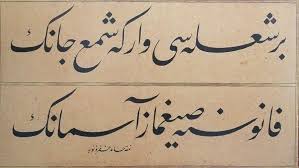 بر شعله سی وار که شمع جانك
فانوسنه صیغماز آسمانك